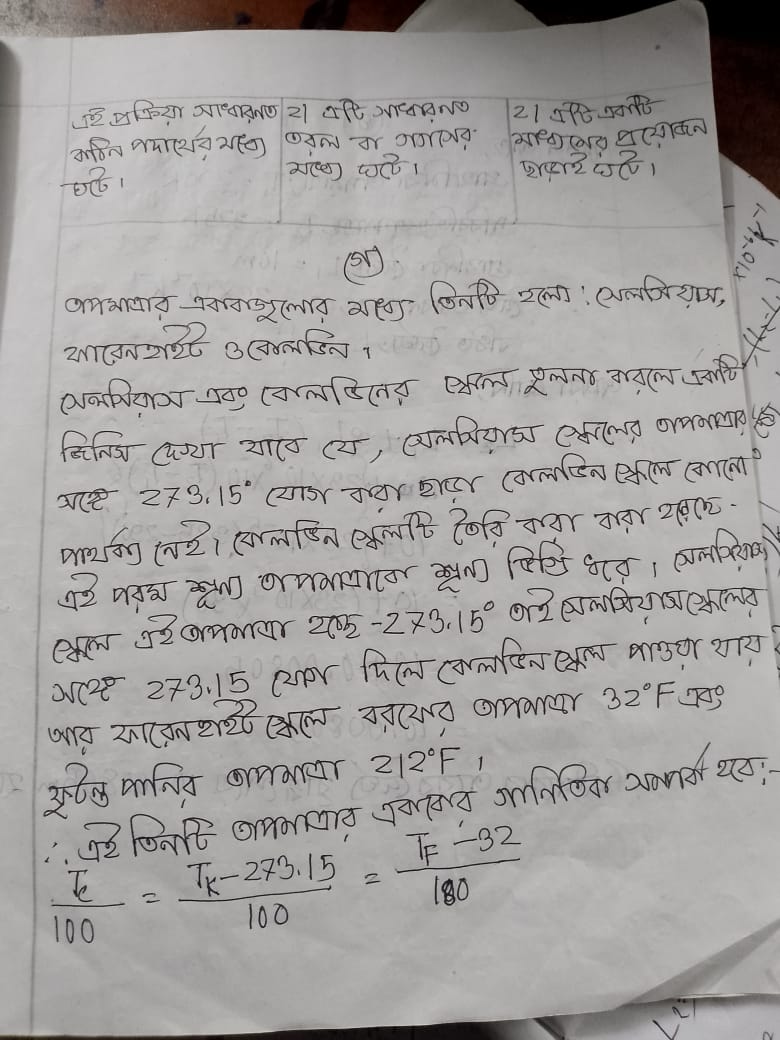 এই প্রক্রিয়া সাধারনত
কঠিন পদার্থের মধ্যে
ঘটে।
২। এটি সাধারনত
তরল বা গ্যাসের
মধ্যে ঘটে।
২। এটি একটি
মাধ্যমের প্রয়োজন
ছাড়াই ঘটে।
(গ)
তাপমাত্রার এককগুলোর মধ্যে তিনটি হলো: সেলসিয়াস,
ফারেনহাইট ও কেলভিন।
সেলসিয়াস এবং কেলভিনের স্কেল তুলনা করলে একটি
জিনিস দেখা যাবে যে, সেলসিয়াস স্কেলের তাপমাত্রার
সঙ্গে 273.15° যোগ করা ছাড়া কেলভিন স্কেলে কোনো
পার্থক্য নেই। কেলভিন স্কেলটি তৈরি করা করা হয়েছে
এই পরম শূন্য তাপমাত্রাকে শূন্য ডিগ্রি ধরে। সেলসিয়াস
স্কেলে এই তাপমাত্রা হচ্ছে -273.15° তাই সেলসিয়াস স্কেলের
সঙ্গে 273.15 যোগ দিলে কেলভিন স্কেল পাওয়া যায়
আর ফারেনহাইট স্কেলে বরফের তাপমাত্রা 32°F এবং
ফুটন্ত পানির তাপমাত্রা 212°F।
∴ এই তিনটি তাপমাত্রার এককের গানিতিক সম্পর্ক হবে:-
T_c/100 = (T_K - 273.15)/100 = (T_F - 32)/180